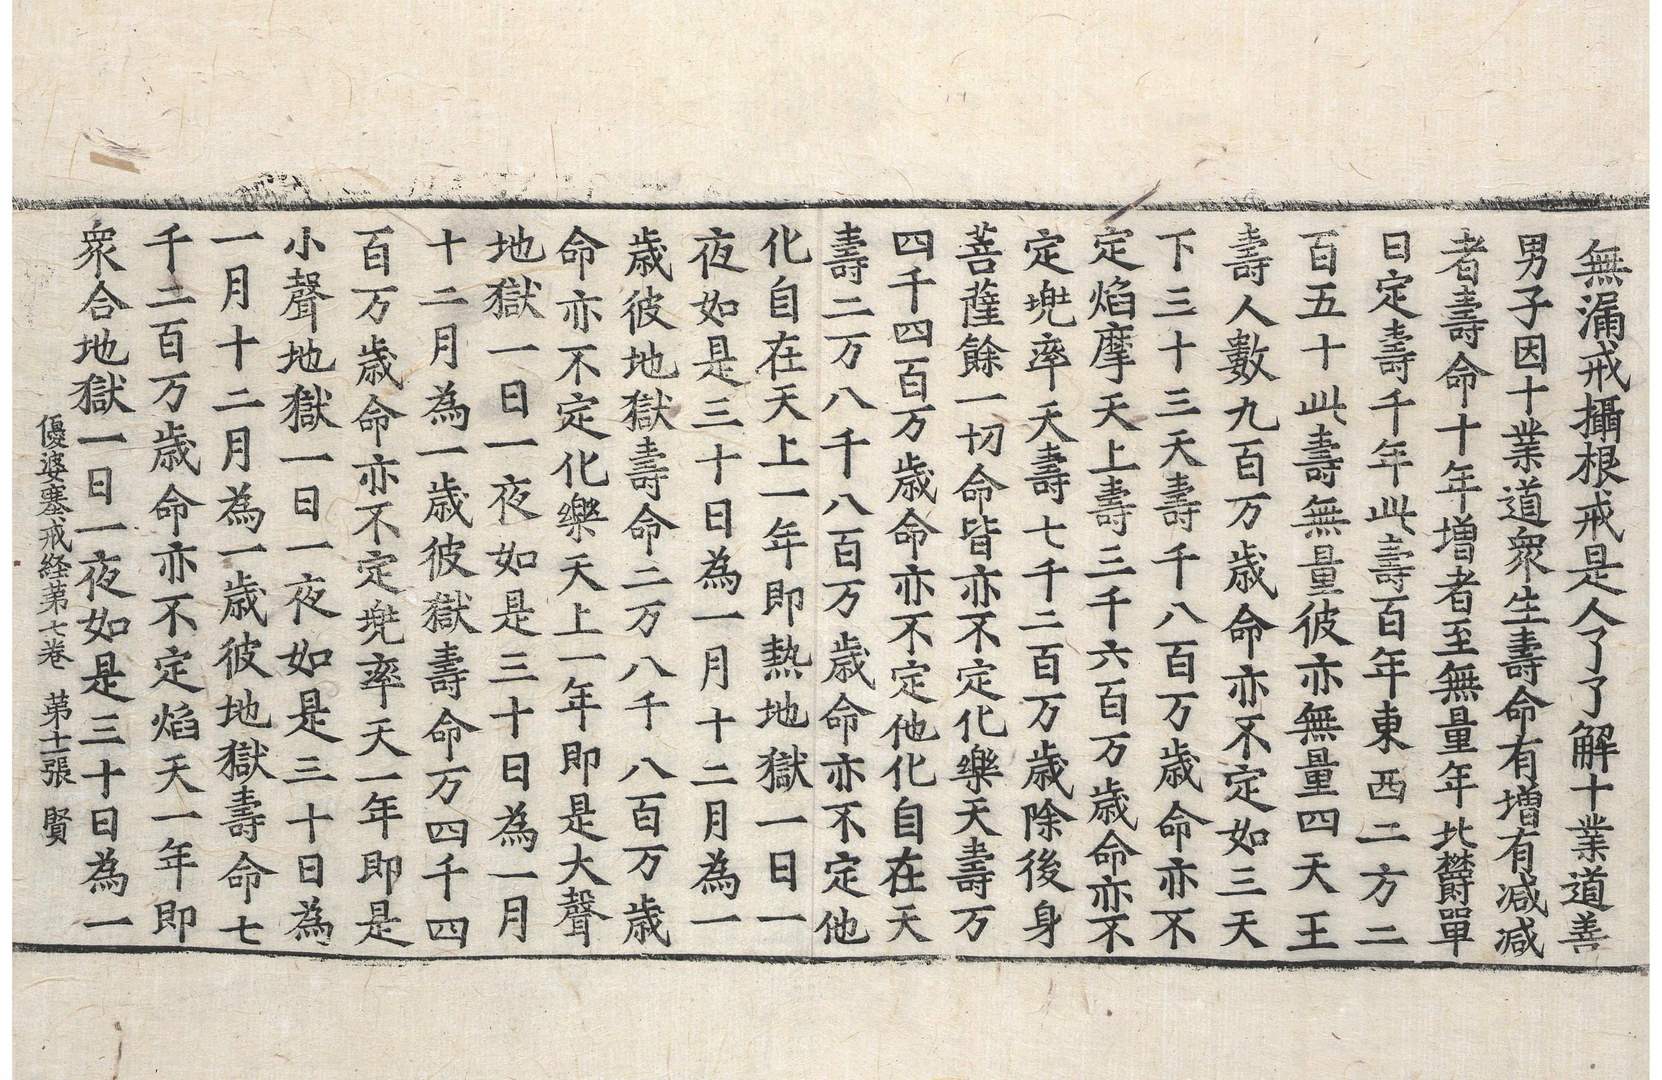 無漏戒攝根戒是人了了解十業道善
男子因十業道衆生壽命有増有減減
者壽命十年増者至無量年北欝單
曰定壽千年此壽百年東西二方二
百五十此壽無量彼亦無量四天王
壽人數九百万歳命亦不定如三天
下三十三天壽千八百万歳命亦不
定焰摩天上壽三千六百万歳命亦不
定兠率天壽七千二百万歳除後身
菩薩餘一切命皆亦不定化樂天壽万
四千四百万歳命亦不定他化自在天
壽二万八千八百万歳命亦不定他
化自在天上一年即熱地獄一日一
夜如是三十日為一月十二月為一
歳彼地獄壽命二万八千八百万歳
命亦不定化樂天上一年即是大聲
地獄一日一夜如是三十日為一月
十二月為一歳彼獄壽命万四千四
百万歳命亦不定兠率天一年即是
小聲地獄一日一夜如是三十日為
一月十二月為一歳彼地獄壽命七
千二百万歳命亦不定焰天一年即
衆合地獄一日一夜如是三十日為一
優婆塞戒経第七巻 第十二張 賢